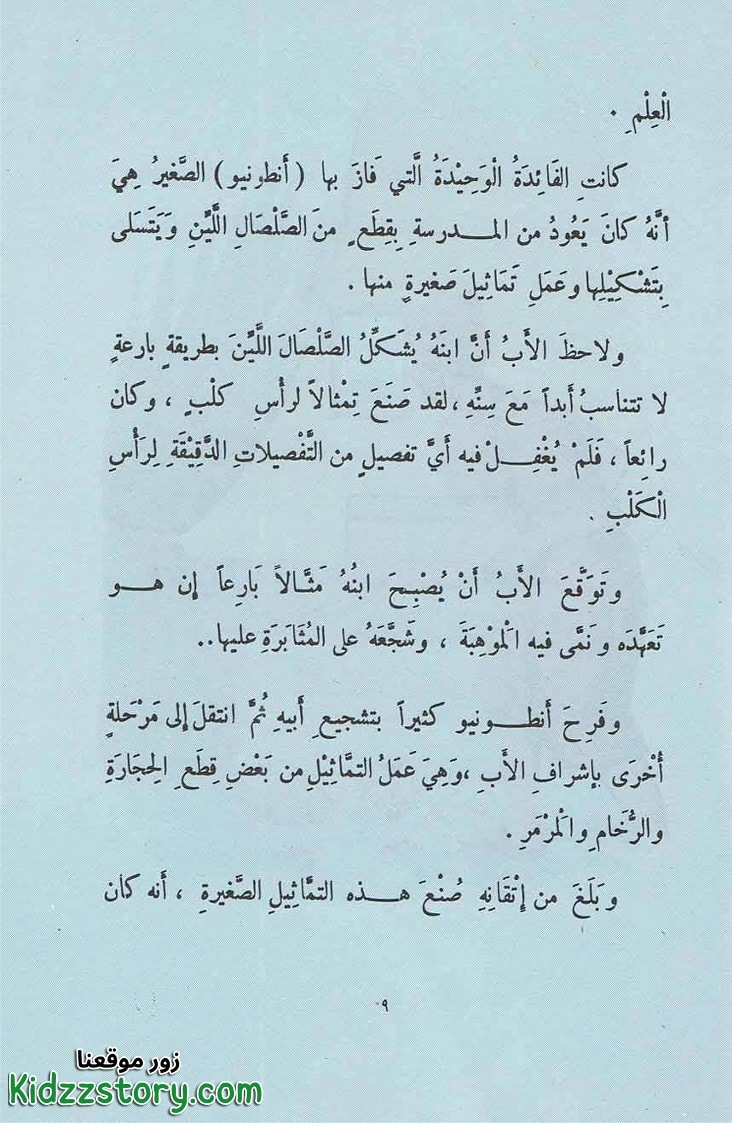 الْعِلْمِ .
كانتِ الفَائِدَةُ الْوَحِيْدَةُ الَّتي فَازَ بها (أنطونيو) الصَّغيرُ هِيَ
أنَّهُ كانَ يَعُودُ من المدرسةِ بِقِطَعٍ منَ الصَّلْصَالِ اللَّيِّنِ وَيَتَسَلى
بِتَشْكِيْلِها وعَمَلِ تَمَاثِيلَ صَغيرةٍ منها .
ولاحظَ الأَبُ أنَّ ابنَهُ يُشَكِّلُ الصَّلْصَالَ اللَّيِّنَ بطريقةٍ بارعةٍ
لا تتناسبُ أبداً مَعَ سِنِّهِ ، لقد صَنَعَ تِمْثالاً لرأسِ كلْبٍ ، وكان
رائِعاً ، فَلَمْ يُغْفِلْ فيه أيَّ تفصيلٍ من التَّفْصيلاتِ الدَّقِيْقَةِ لِرَأْسِ
الْكَلْبِ .
وتَوَقَّعَ الأَبُ أَنْ يُصْبِحَ ابنُهُ مَثَّالاً بَارِعاً إن هو
تَعَهَّدَه ونَمَّى فيه الْمَوْهِبَةَ ، وشَجَّعَهُ على المُثَابَرَةِ عليها..
وفَرِحَ أنطونيو كثيراً بتشجيعِ أبيهِ ثُمَّ انتقلَ إلى مَرْحَلةٍ
أُخْرَى بإشرافِ الأَبِ ، وَهِيَ عَمَلُ التمَّاثِيْلِ من بَعْضِ قِطَعِ الحِجَارَةِ
والرُّخَامِ والْمَرْمَرِ .
وبَلَغَ من إتْقَانِهِ صُنْعَ هذه التمَّاثِيلِ الصَّغيرةِ ، أنه كان
٩
زور موقعنا
Kidzzstory.com